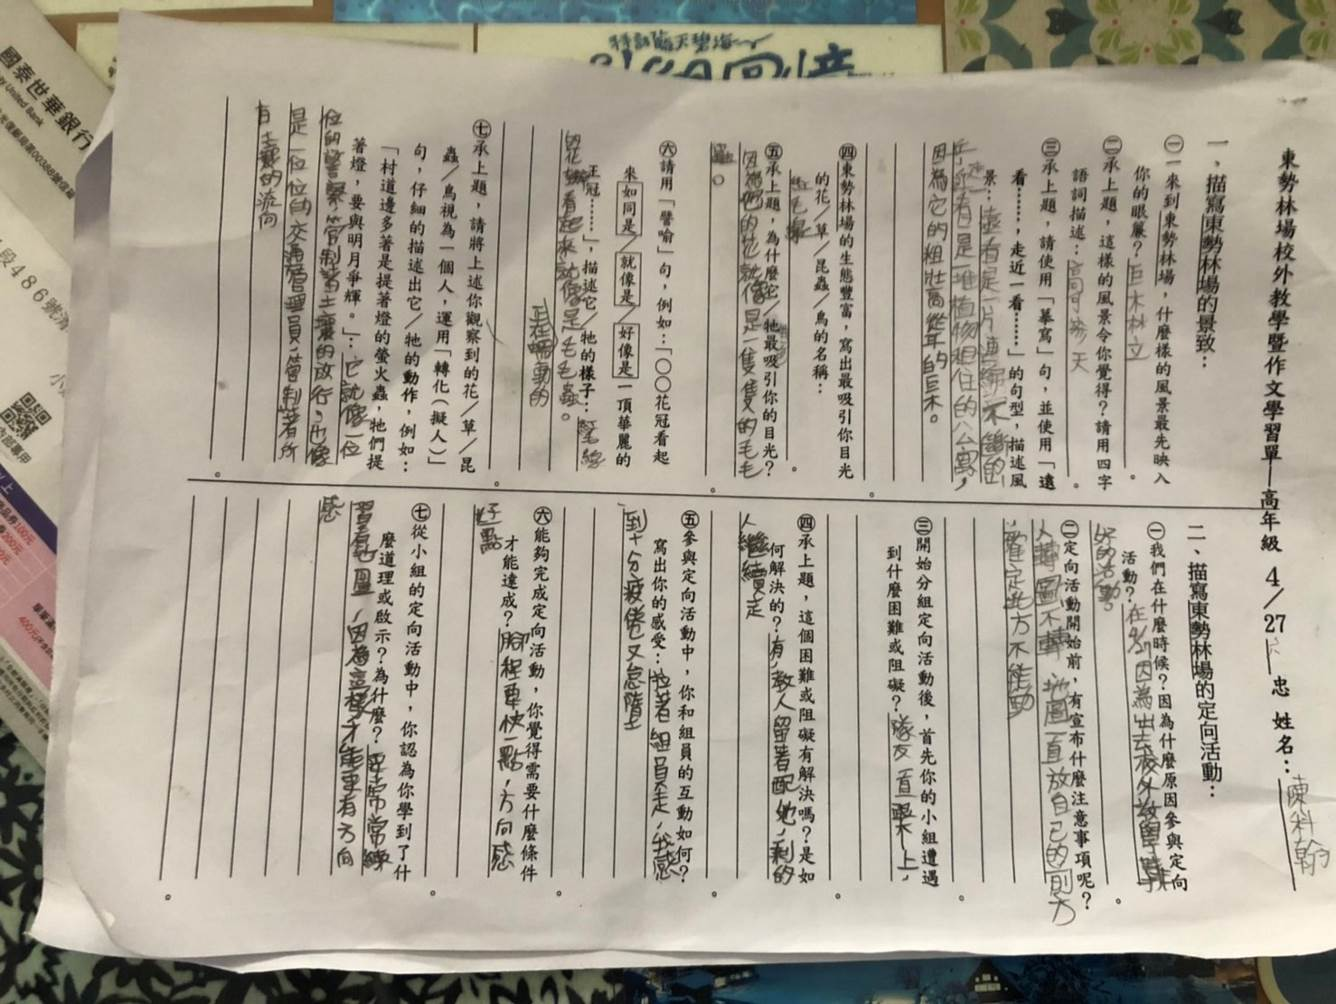 東勢林場校外教學暨作文學習單—高年級 4/27 忠 姓名：陳科翰
一、描寫東勢林場的景致：
㊀一來到東勢林場，什麼樣的風景最先映入
你的眼簾？巨木林立。
㊁承上題，這樣的風景令你覺得？請用四字
語詞描述：高可參天。
㊂承上題，請使用「摹寫」句，並使用「遠
看……，走近一看……」的句型，描述風
景：遠看是一片連綿不斷的，
近看是一堆植物相住的公寓，
因為它的粗壯高從年的巨木。
㊃東勢林場的生態豐富，寫出最吸引你目光
的花/草/昆蟲/鳥的名稱：
㊄承上題，為什麼它/牠最吸引你的目光？
因為他的花就像是一隻隻的毛毛
蟲。
㊅請用「譬喻」句，例如：「〇〇花冠看起
來如同是/就像是/好像是一頂華麗的
王冠……」，描述它/牠的樣子：
的花 看起來就像是毛毛蟲。
正在蠕動的
㊆承上題，請將上述你觀察到的花/草/昆
蟲/鳥視為一個人，運用「轉化(擬人)」
句，仔細的描述出它/牠的動作，例如：
「村道邊多著是提著燈的螢火蟲，牠們提
著燈，要與明月爭輝。」：它就像一位
位的警察管制著土壤的放行，市像
是一位位的交通管理員，管制著所
有土壤的流向
二、描寫東勢林場的定向活動：
㊀我們在什麼時候？因為什麼原因參與定向
活動？在 因為出去校外教學時
好的活動。
㊁定向活動開始前，有宣布什麼注意事項呢？
人轉圖不轉 地圖直放自己的前方
確定北方不能動
㊂開始分組定向活動後，首先你的小組遭遇
到什麼困難或阻礙？隊友一直跟不上，
㊃承上題，這個困難或阻礙有解決嗎？是如
何解決的？有，教人留著配他，剩的
人繼續走
㊄參與定向活動中，你和組員的互動如何？
寫出你的感受：拉著組員走，我感
到十分疲倦又怠隋
㊅能夠完成定向活動，你覺得需要什麼條件
才能達成？腳程要快一點，方向感
好點
㊆從小組的定向活動中，你認為你學到了什
麼道理或啟示？為什麼？平常常練
習看地圖，因為這樣才能更有方向
感
國泰世華銀行
United Bank
段486號